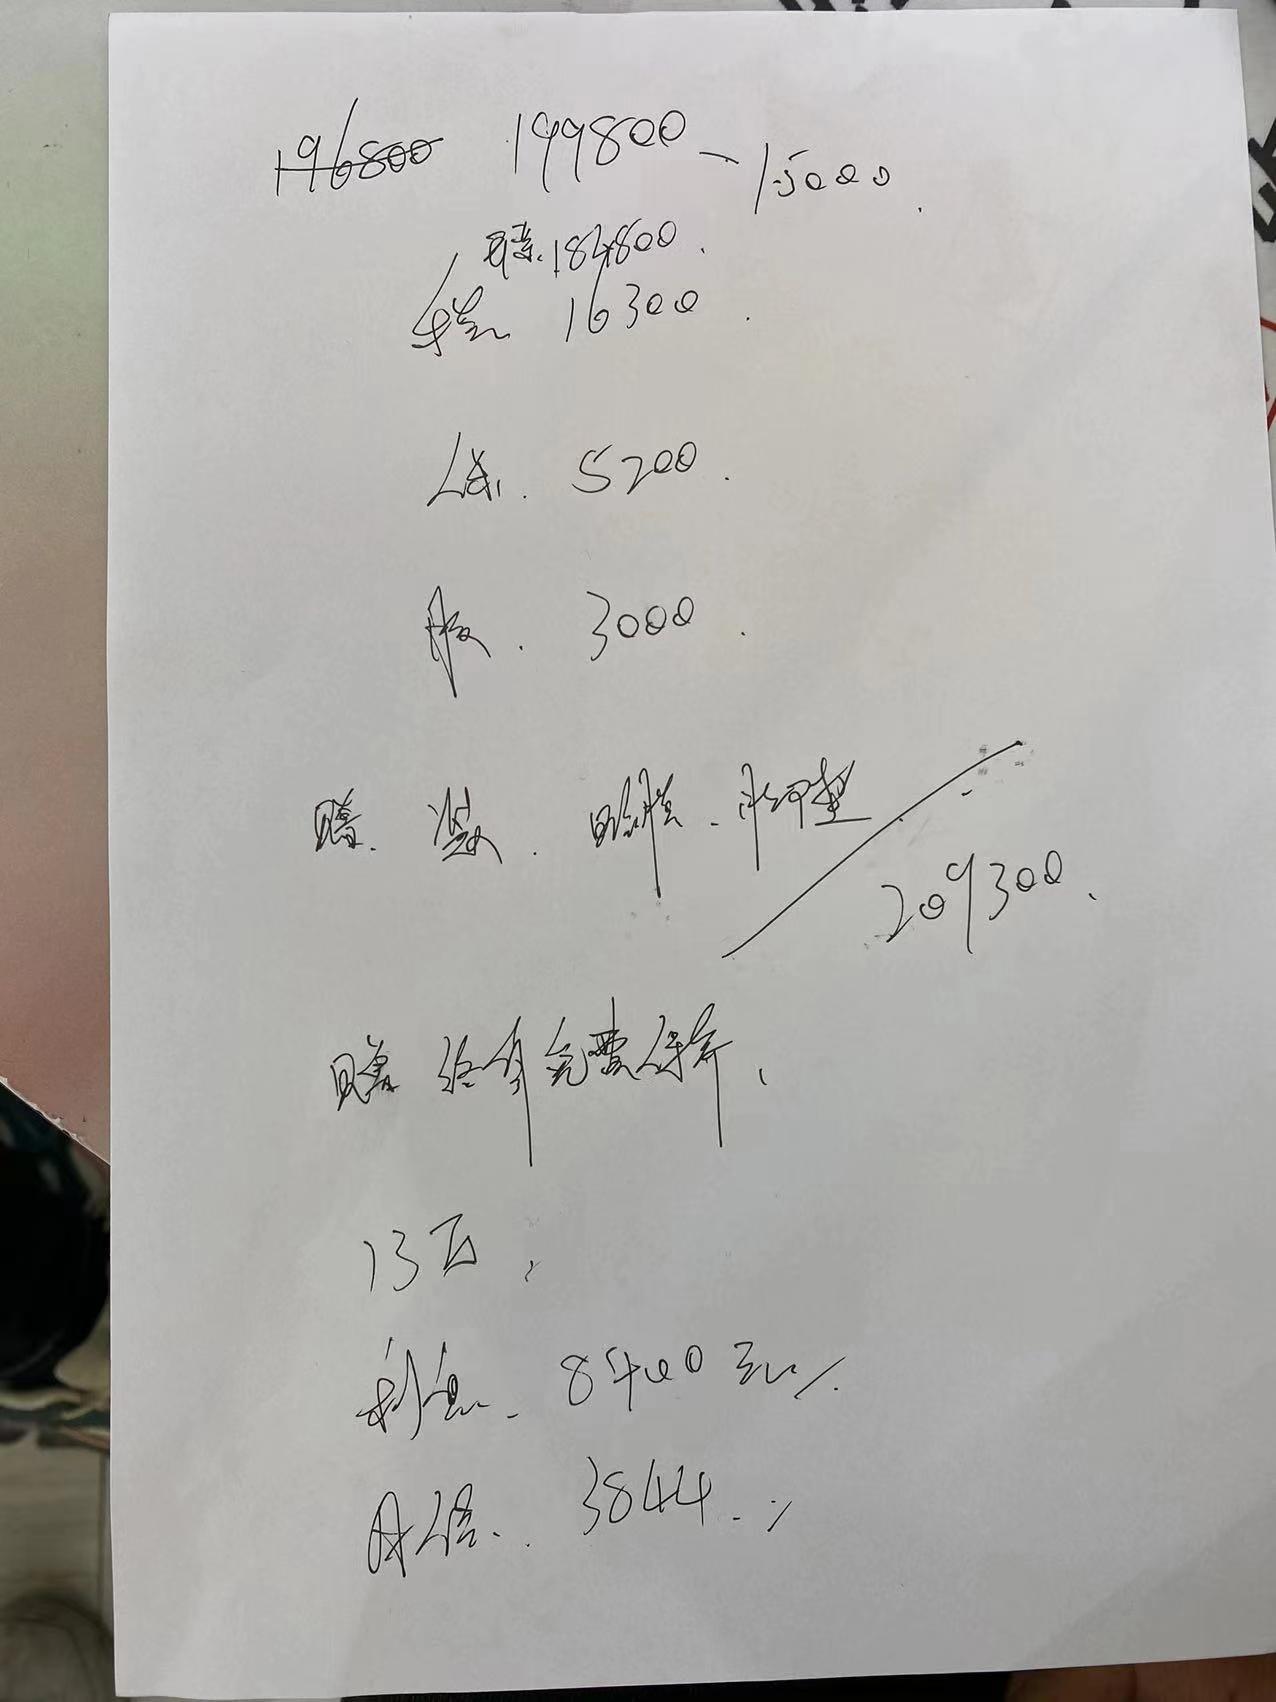 196800 199800 - 15000.
184800.
16300.
保. 5200.
服. 3000.
赠. 装. 脚垫
209300.
赠 终身免费保养.
13万,
利息. 8400元
月供. 3844.